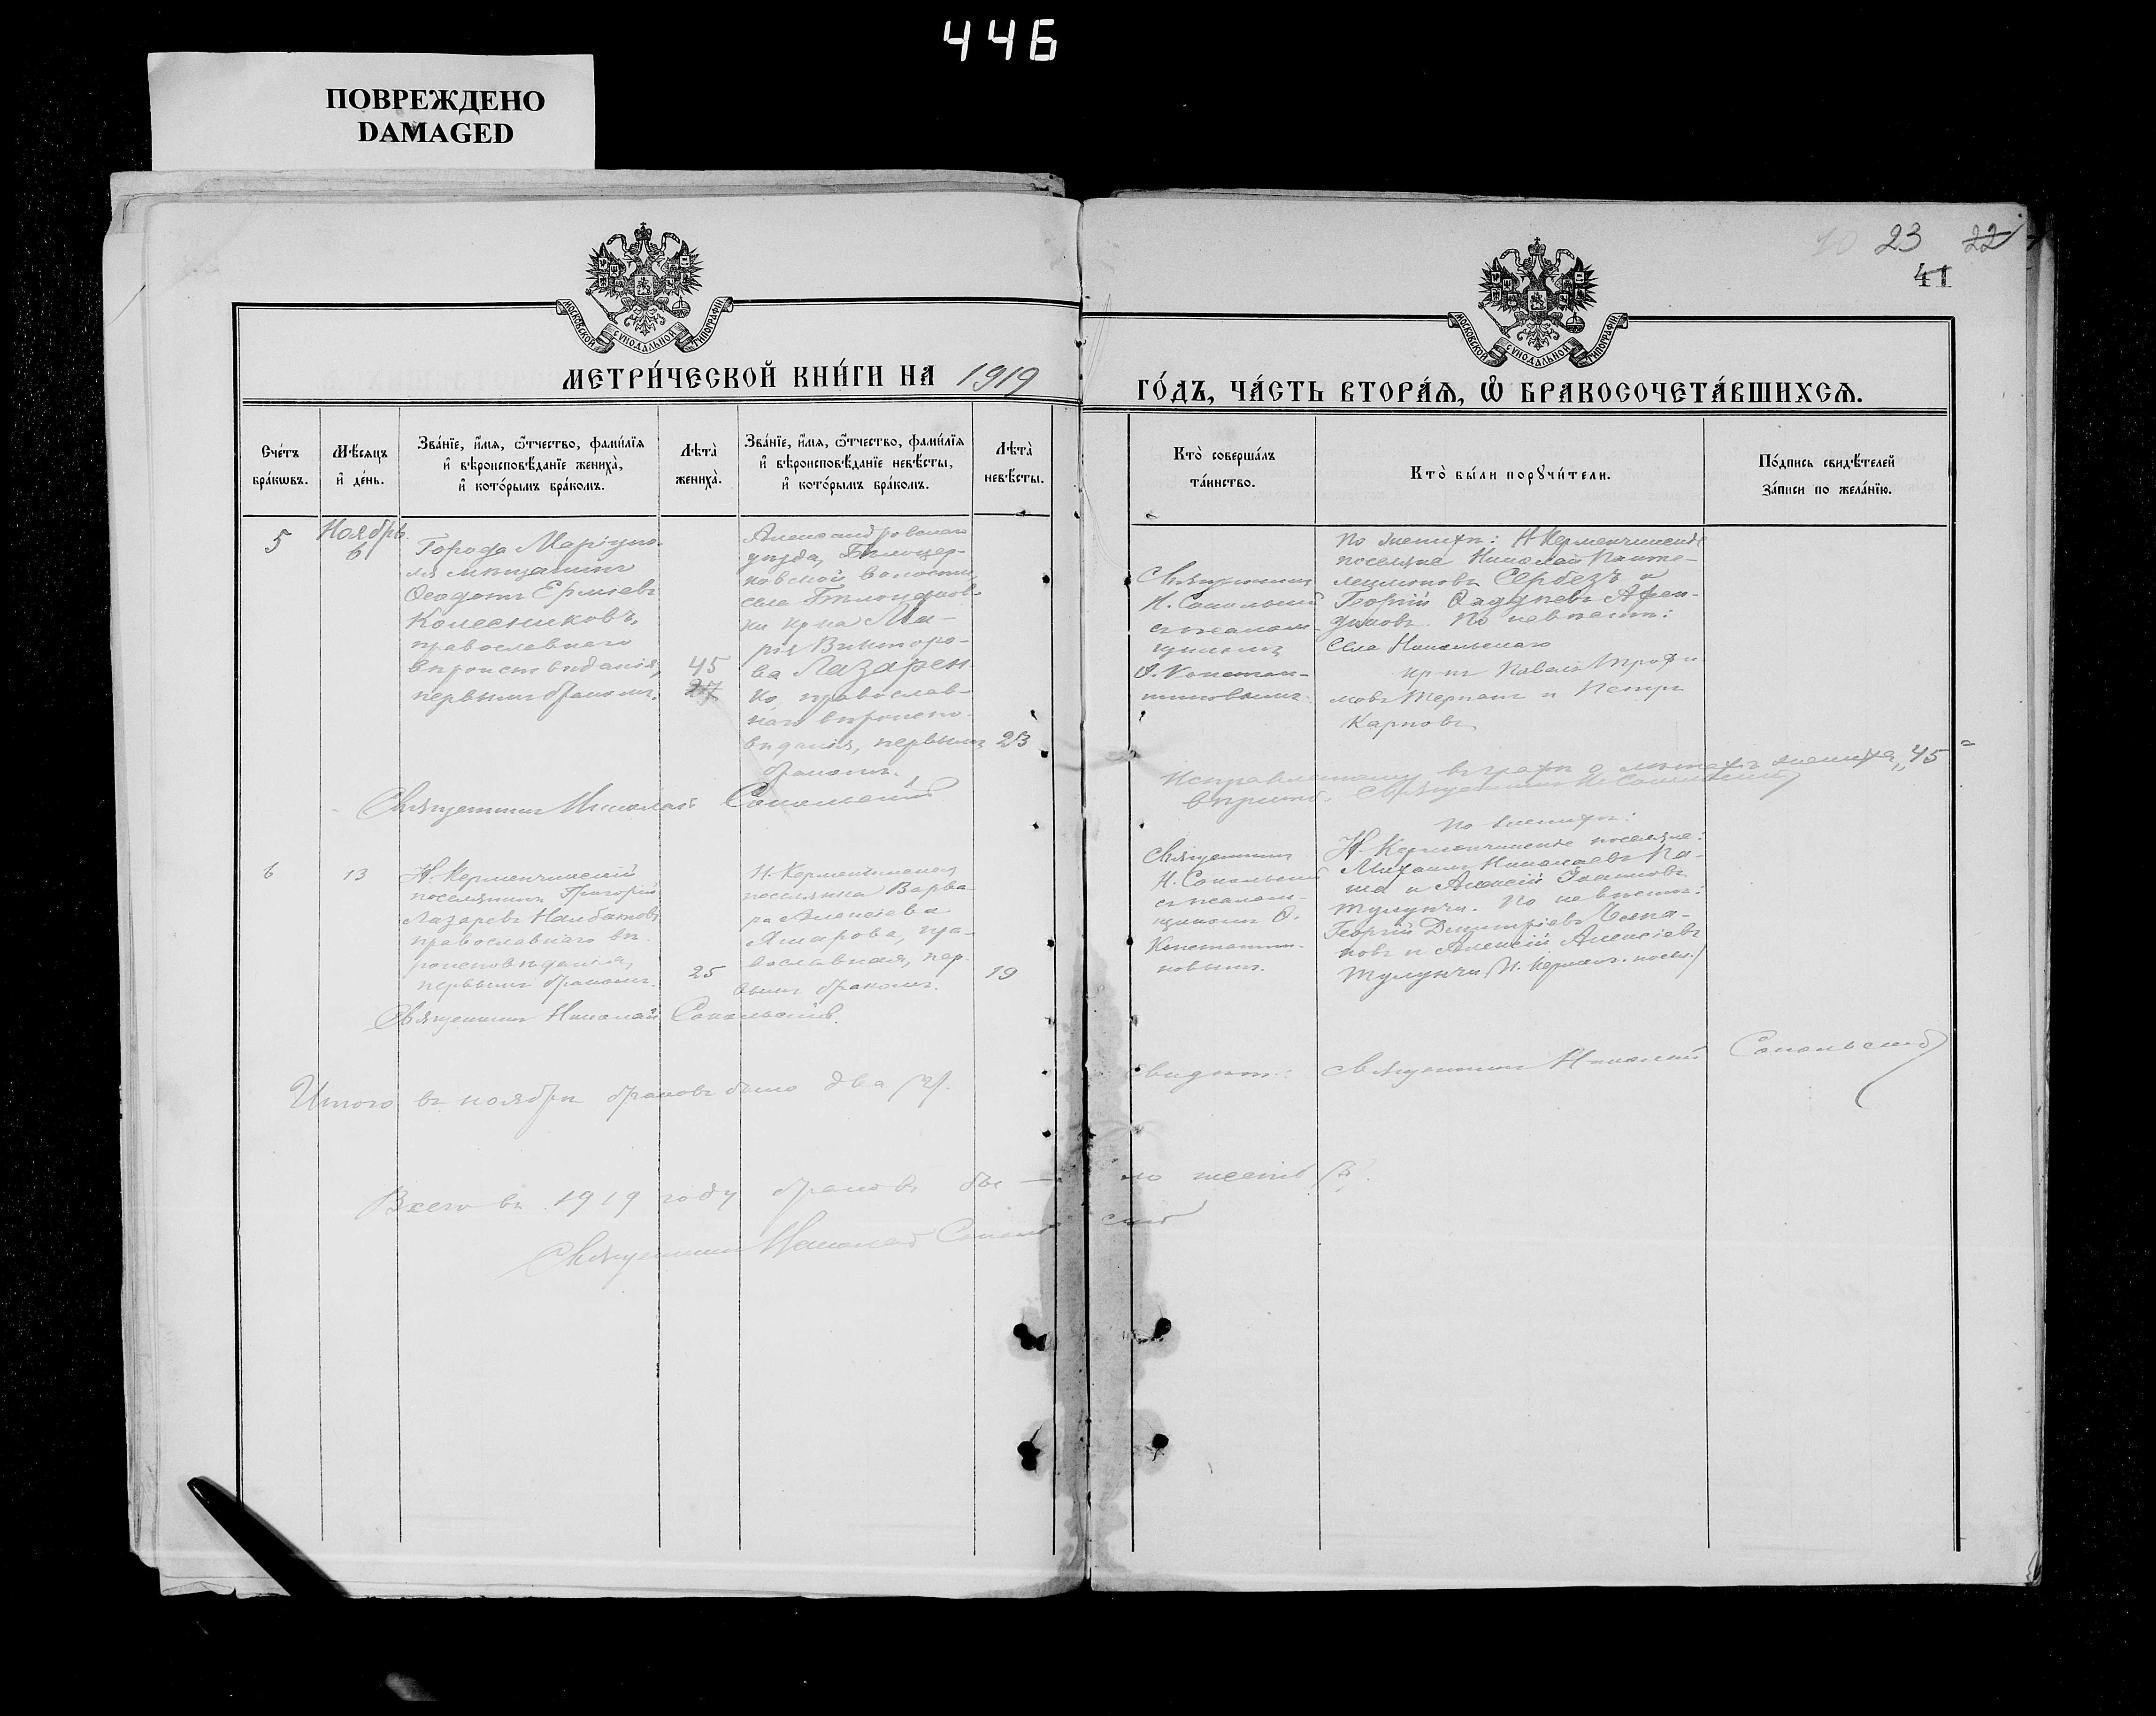 446
ПОВРЕЖДЕНО
DAMAGED
10 23 22
41
МОСКОВСКОЙ СѴНОДАЛЬНОЙ ТИПОГРАФІИ
МОСКОВСКОЙ СѴНОДАЛЬНОЙ ТИПОГРАФІИ
МЕТРИ́ЧЕСКОЙ КНИ́ГИ НА 1919
ГО́ДЪ, ЧА́СТЬ ВТОРА́Ѧ, Ѽ БРАКОСОЧЕТА́ВШИХСѦ.
Сче́тъ
бра́кѡвъ.
Мѣ́сѧцъ
и҆ де́нь.
Зва́нїе, и҆́мѧ, ѻ҆́тчество, фами́лїѧ
и҆ вѣроисповѣ́данїе женихà,
и҆ кото́рымъ бра́комъ.
Лѣ̀тà
женихà.
Зва́нїе, и҆́мѧ, ѻ҆́тчество, фами́лїѧ
и҆ вѣроисповѣ́данїе невѣ́сты,
и҆ кото́рымъ бра́комъ.
Лѣ̀тà
невѣ́сты.
Кто̀ соверша́лъ
та́инство.
Кто̀ бы́ли порꙋчи́тели.
По́дпись свидѣ́телей
за́писи по жела́нїю.
5
Ноябрь
6
Города Маріупо-
ля мѣщанинъ
Ѳеодотъ Ермиевъ
Колесниковъ,
православнаго
вѣроисповѣданія,
первымъ бракомъ.
45
27
Александровскаго
уѣзда, Бѣлоцер-
ковской волости,
села
кр-ка Ма-
рія Викторо-
ва Лазарен-
ко, православ-
наго вѣроиспо-
вѣданія, первымъ
бракомъ.
23
Священникъ
Н. Сокольскій
съ псалом-
щикомъ
Ѳ. Констан-
тиновымъ.
По женихѣ: Н. Керменчикскіе
поселяне Николай Панте-
леимоновъ Сербезъ и
Георгій Ѳаддеевъ Афен-
диковъ. По невѣстѣ:
Села Никольскаго
кр-не Павелъ Трофи-
мовъ и Петръ
Карповъ
Священникъ Николай Сокольскій
Исправленному въ графѣ о лѣтахъ жениха „45"
вѣрить. Священникъ Н. Сокольскій
6
13
Н. Керменчикскій
поселянинъ Григорій
Лазаревъ Налбатовъ,
православнаго вѣ-
роисповѣданія,
первымъ бракомъ.
25
Н. Керменчикская
поселянка Варва-
ра Алексіева
Ахмарова, пра-
вославная, пер-
вымъ бракомъ.
19
Священникъ
Н. Сокольскій
съ псалом-
щикомъ Ѳ.
Константи-
новымъ.
По женихѣ:
Н. Керменчикскіе поселяне:
Михаилъ Николаевъ Па-
ша и Алексій Іоанновъ
Тулунчи. По невѣстѣ:
Георгій Димитріевъ
и Алексій Алексіевъ
Тулунчи (Н. Керменч. посел.)
Священникъ Николай Сокольскій.
Итого въ ноябрѣ браковъ было два (2).
Свидѣт.: Священникъ Николай Сокольскій
Всего въ 1919 году браковъ бы- ло шесть (6).
Священникъ Николай Соколь- скій